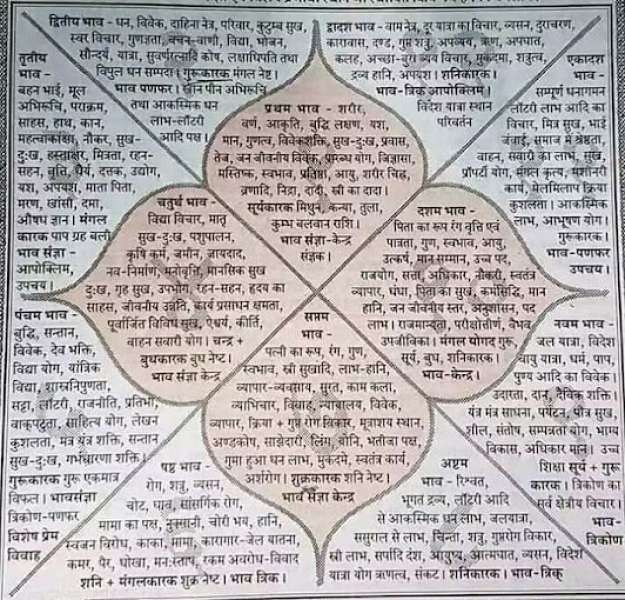 द्वितीय भाव - धन, विवेक, दाहिना नेत्र, परिवार, कुटुम्ब सुख,
स्वर विचार, गुणज्ञता, वचन-वाणी, विद्या, भोजन,
सौन्दर्य, यात्रा, सुवर्णरत्नादि कोष, लक्षाधिपति तथा
विपुल धन सम्पदा। गुरूकारक मंगल नेष्ट।
भाव पणफर। खान पीन अभिरूचि
तथा आकस्मिक धन
लाभ-लॉटरी
आदि पक्ष।
द्वादश भाव - वाम नेत्र, दूर यात्रा का विचार, व्यसन, दुराचरण,
कारावास, दण्ड, गुप्त शत्रु, अपव्यय, ऋण, अपघात,
कलह, अच्छा-बुरा व्यय विचार, मुकदमा, शत्रुत्व,
द्रव्य हानि, अपयश। शनिकारक।
भाव-त्रिक आपोक्लिम।
विदेश यात्रा स्थान
परिवर्तन
तृतीय
भाव -
बहन भाई, मूल
अभिरूचि, पराक्रम,
साहस, हाथ, कान,
महत्वाकांक्षा, नौकर, सुख-
दुःख, हस्ताक्षर, मित्रता, रहन-
सहन, वृत्ति, धैर्य, दत्तक, उद्योग,
यश, अपयश, माता पिता,
मरण, खांसी, दमा,
औषध ज्ञान। मंगल
कारक पाप ग्रह बली
भाव संज्ञा -
आपोक्लिम,
उपचय।
प्रथम भाव - शरीर,
वर्ण, आकृति, बुद्धि लक्षण, यश,
मान, गुणत्व, विवेकशक्ति, सुख-दुःख, प्रवास,
तेज, जन जीवनीय विवेक, प्रारब्ध योग, जिज्ञासा,
मस्तिष्क, स्वभाव, प्रतिष्ठा, आयु, शरीर चिह्न,
व्रणादि, निद्रा, दादी, स्त्री का दादा।
सूर्यकारक मिथुन, कन्या, तुला,
कुम्भ बलवान राशि।
भाव संज्ञा-केन्द्र
संज्ञक।
एकादश
भाव -
सम्पूर्ण धनागमन
लॉटरी लाभ आदि का
विचार, मित्र सुख, भाई
जंवाई, समाज में श्रेष्ठता,
वाहन, सवारी का लाभ, सुख,
प्रॉपर्टी योग, मंगल कृत्य, मशीनरी
कार्य, मेलमिलाप क्रिया
कुशलता। आकस्मिक
लाभ, आभूषण योग।
गुरूकारक।
भाव-पणफर
उपचय।
चतुर्थ भाव -
विद्या विचार, मातृ
सुख-दुःख, पशुपालन,
कृषि कर्म, जमीन, जायदाद,
नव-निर्माण, मनोवृत्ति, मानसिक सुख
दुःख, गृह सुख, उपभोग, रहन-सहन, हृदय का
साहस, जीवनीय उन्नति, कार्य प्रसाधन क्षमता,
पूर्वार्जित विविध सुख, ऐश्वर्य, कीर्ति,
वाहन सवारी योग। चन्द्र +
बुधकारक बुध नेष्ट।
भाव संज्ञा केन्द्र
दशम भाव -
पिता का रूप रंग वृत्ति एवं
पात्रता, गुण, स्वभाव, आयु,
उत्कर्ष, मान सम्मान, उच्च पद,
राजयोग, सत्ता, अधिकार, नौकरी, स्वतंत्र
व्यापार, धंधा, पिता का सुख, कर्मसिद्धि, मान
हानि, जन जीवनी स्तर, अनुशासन, पद
लाभ। राजमान्यता, परीक्षोत्तीर्ण, वैभव
उपजीविका। मंगल योगद गुरू,
सूर्य, बुध, शनिकारक।
भाव-केन्द्र।
पंचम भाव -
बुद्धि, सन्तान,
विवेक, देव भक्ति,
विद्या योग, यांत्रिक
विद्या, शास्त्रनिपुणता,
सट्टा, लॉटरी, राजनीति, प्रतिभा,
वाक्पटुता, साहित्य योग, लेखन
कुशलता, मंत्र यंत्र शक्ति, सन्तान
सुख-दुःख, गर्भधारणा शक्ति।
गुरूकारक गुरू एकमात्र
विफल। भावसंज्ञा
त्रिकोण-पणफर
विशेष प्रेम
विवाह
सप्तम
भाव -
पत्नी का रूप, रंग, गुण,
स्वभाव, स्त्री सुखादि, लाभ-हानि,
व्यापार-व्यवसाय, सुरत, काम कला,
व्याभिचार, विवाह, न्यायालय, विवेक,
व्यापार, क्रिया + गुप्त रोग विकार, मूत्राशय स्थान,
अण्डकोष, साझेदारी, लिंग, योनि, भतीजा पक्ष,
गुमा हुआ धन लाभ, मुकदमे, स्वतंत्र कार्य,
अर्शरोग। शुक्रकारक शनि नेष्ट।
भाव संज्ञा केन्द्र
नवम भाव -
जल यात्रा, विदेश
वायु यात्रा, धर्म, पाप,
पुण्य आदि का विवेक।
उदारता, दान, दैविक शक्ति।
यंत्र मंत्र साधना, पर्यटन, पौत्र सुख,
शील, संतोष, सम्पन्नता योग, भाग्य
विकास, अधिकार मान। उच्च
शिक्षा सूर्य + गुरू
कारक। त्रिकोण का
सर्व क्षेत्रीय विचार।
भाव-
त्रिकोण
षष्ठ भाव -
रोग, शत्रु, व्यसन,
चोट, घाव, सांसर्गिक रोग,
मामा का पक्ष, नुक्सानी, चोरी भय, हानि,
स्वजन विरोध, काका, मामा, कारागार-जेल यातना,
कमर, पैर, धोखा, मनःस्ताप, रकम अवरोध-विवाद
शनि + मंगलकारक शुक्र नेष्ट। भाव त्रिक।
अष्टम
भाव - रिश्वत,
भूगत द्रव्य, लॉटरी आदि
से आकस्मिक धन लाभ, जलयात्रा,
ससुराल से लाभ, चिन्ता, शत्रु, गुप्तरोग विकार,
स्त्री लाभ, सर्पादि दंश, आयुष्य, आत्मघात, व्यसन, विदेश
यात्रा योग ऋणत्व, संकट। शनिकारक। भाव-त्रिक्